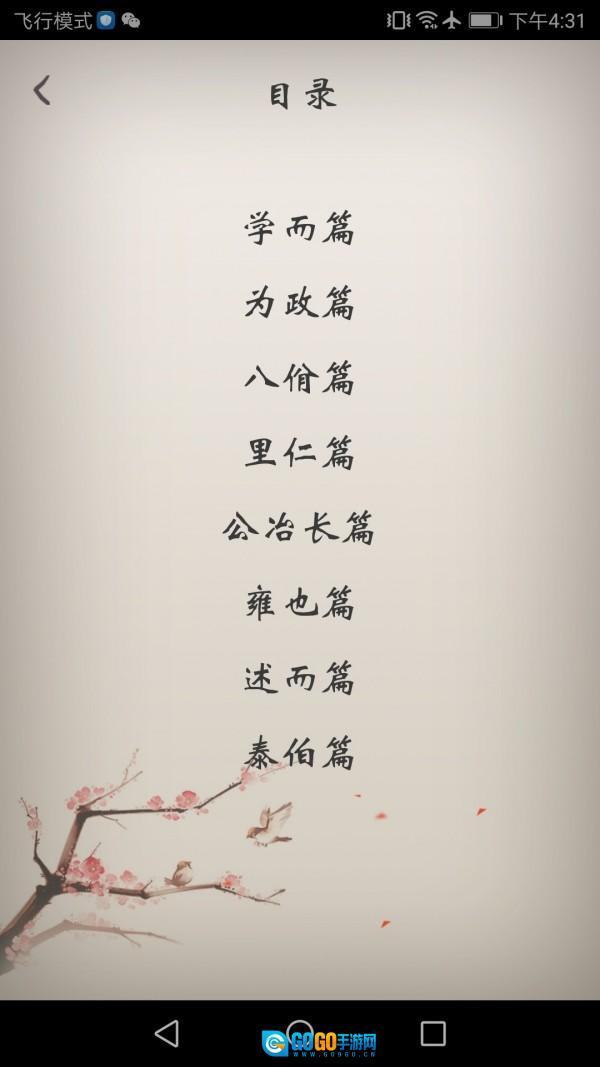 飞行模式 下午4:31
目录
学而篇
为政篇
八佾篇
里仁篇
公冶长篇
雍也篇
述而篇
泰伯篇
GOGO手游网
WWW.GO9GO.CN